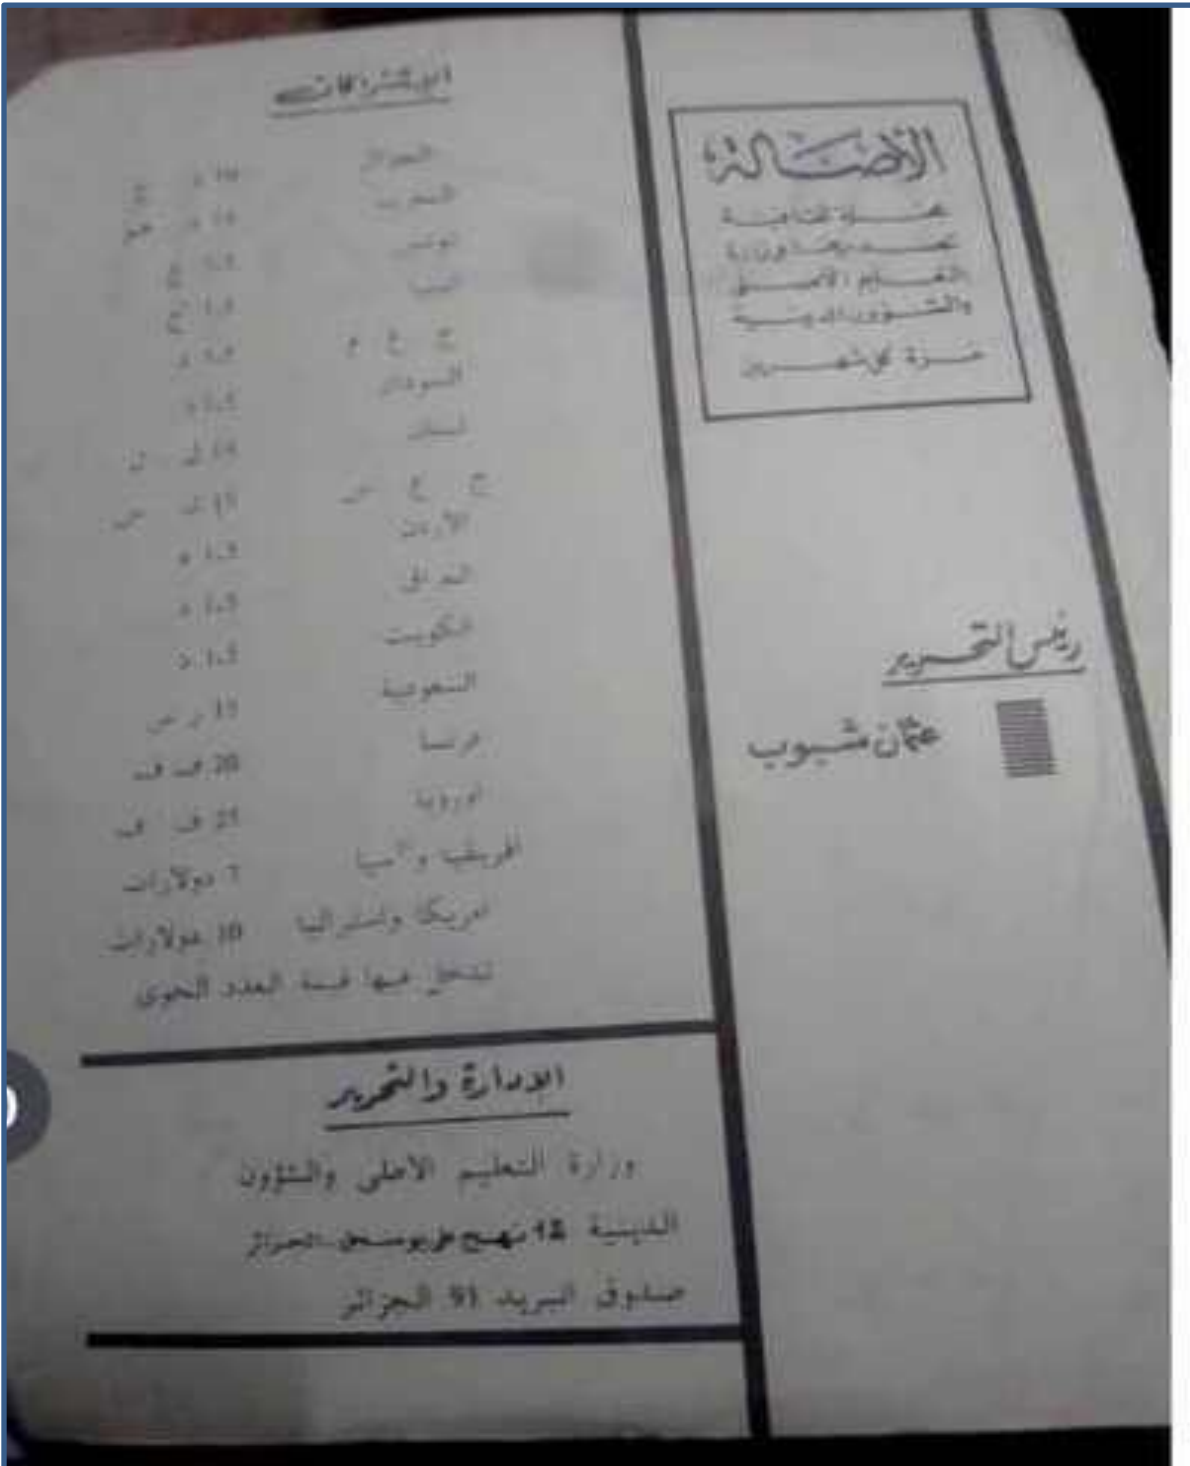 الأصالة
مجلة ثقافية
تصدرها وزارة
التعليم الأصلي
والشؤون الدينية
مرة كل شهرين
رئيس التحرير
عثمان شبوب
الاشتراكات
الجزائر 10 د ج
المغرب
تونس 1.5
ليبيا 1.5
ج ع م 1.5
السودان 1.5
لبنان 15 ل ل
ج ع س 15 ل س
الأردن 1.5 د
العراق 1.5 د
الكويت 1.5 د
السعودية 15 ر س
فرنسا 20 ف ف
أوروبا 25 ف ف
افريقيا وآسيا 7 دولارات
امريكا واستراليا 10 دولارات
تدخل فيها قيمة البريد الجوي
الإدارة والتحرير
وزارة التعليم الاصلي والشؤون
الدينية 12 نهج علي بومنجل الجزائر
صندوق البريد 91 الجزائر